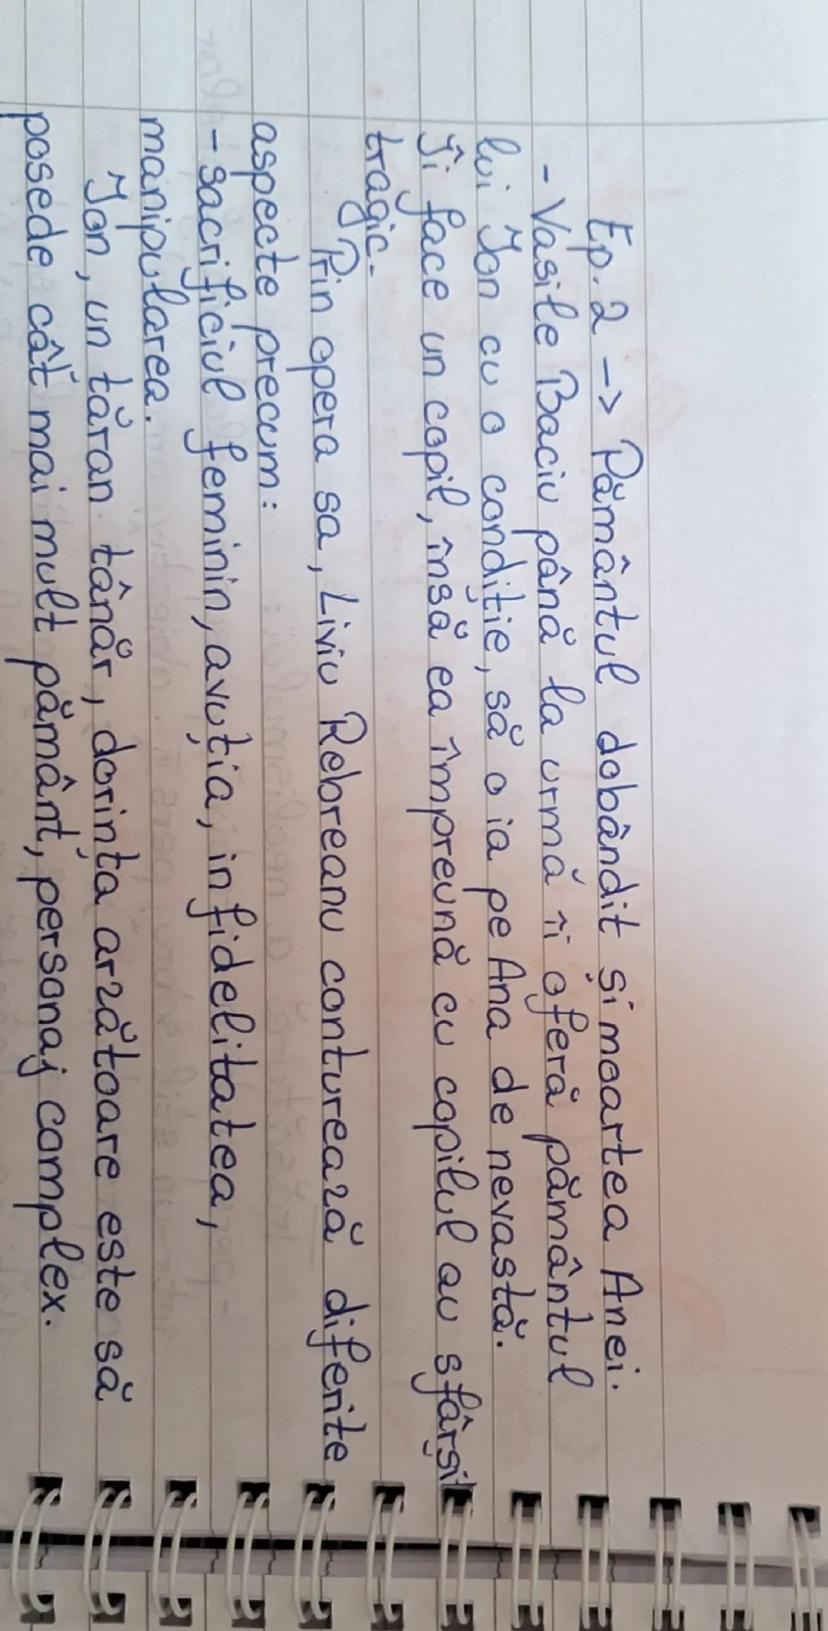 Ep. 2 -> Pământul dobândit și moartea Anei.
- Vasile Baciu până la urmă îi oferă pământul
lui Ion cu o condiție, să o ia pe Ana de nevastă.
Îi face un copil, însă ea împreună cu copilul au sfârșit
tragic.
Prin opera sa, Liviu Rebreanu conturează diferite
aspecte precum:
- sacrificiul feminin, avuția, infidelitatea,
manipularea.
Ion, un țăran tânăr, dorința arzătoare este să
posede cât mai mult pământ, personaj complex.